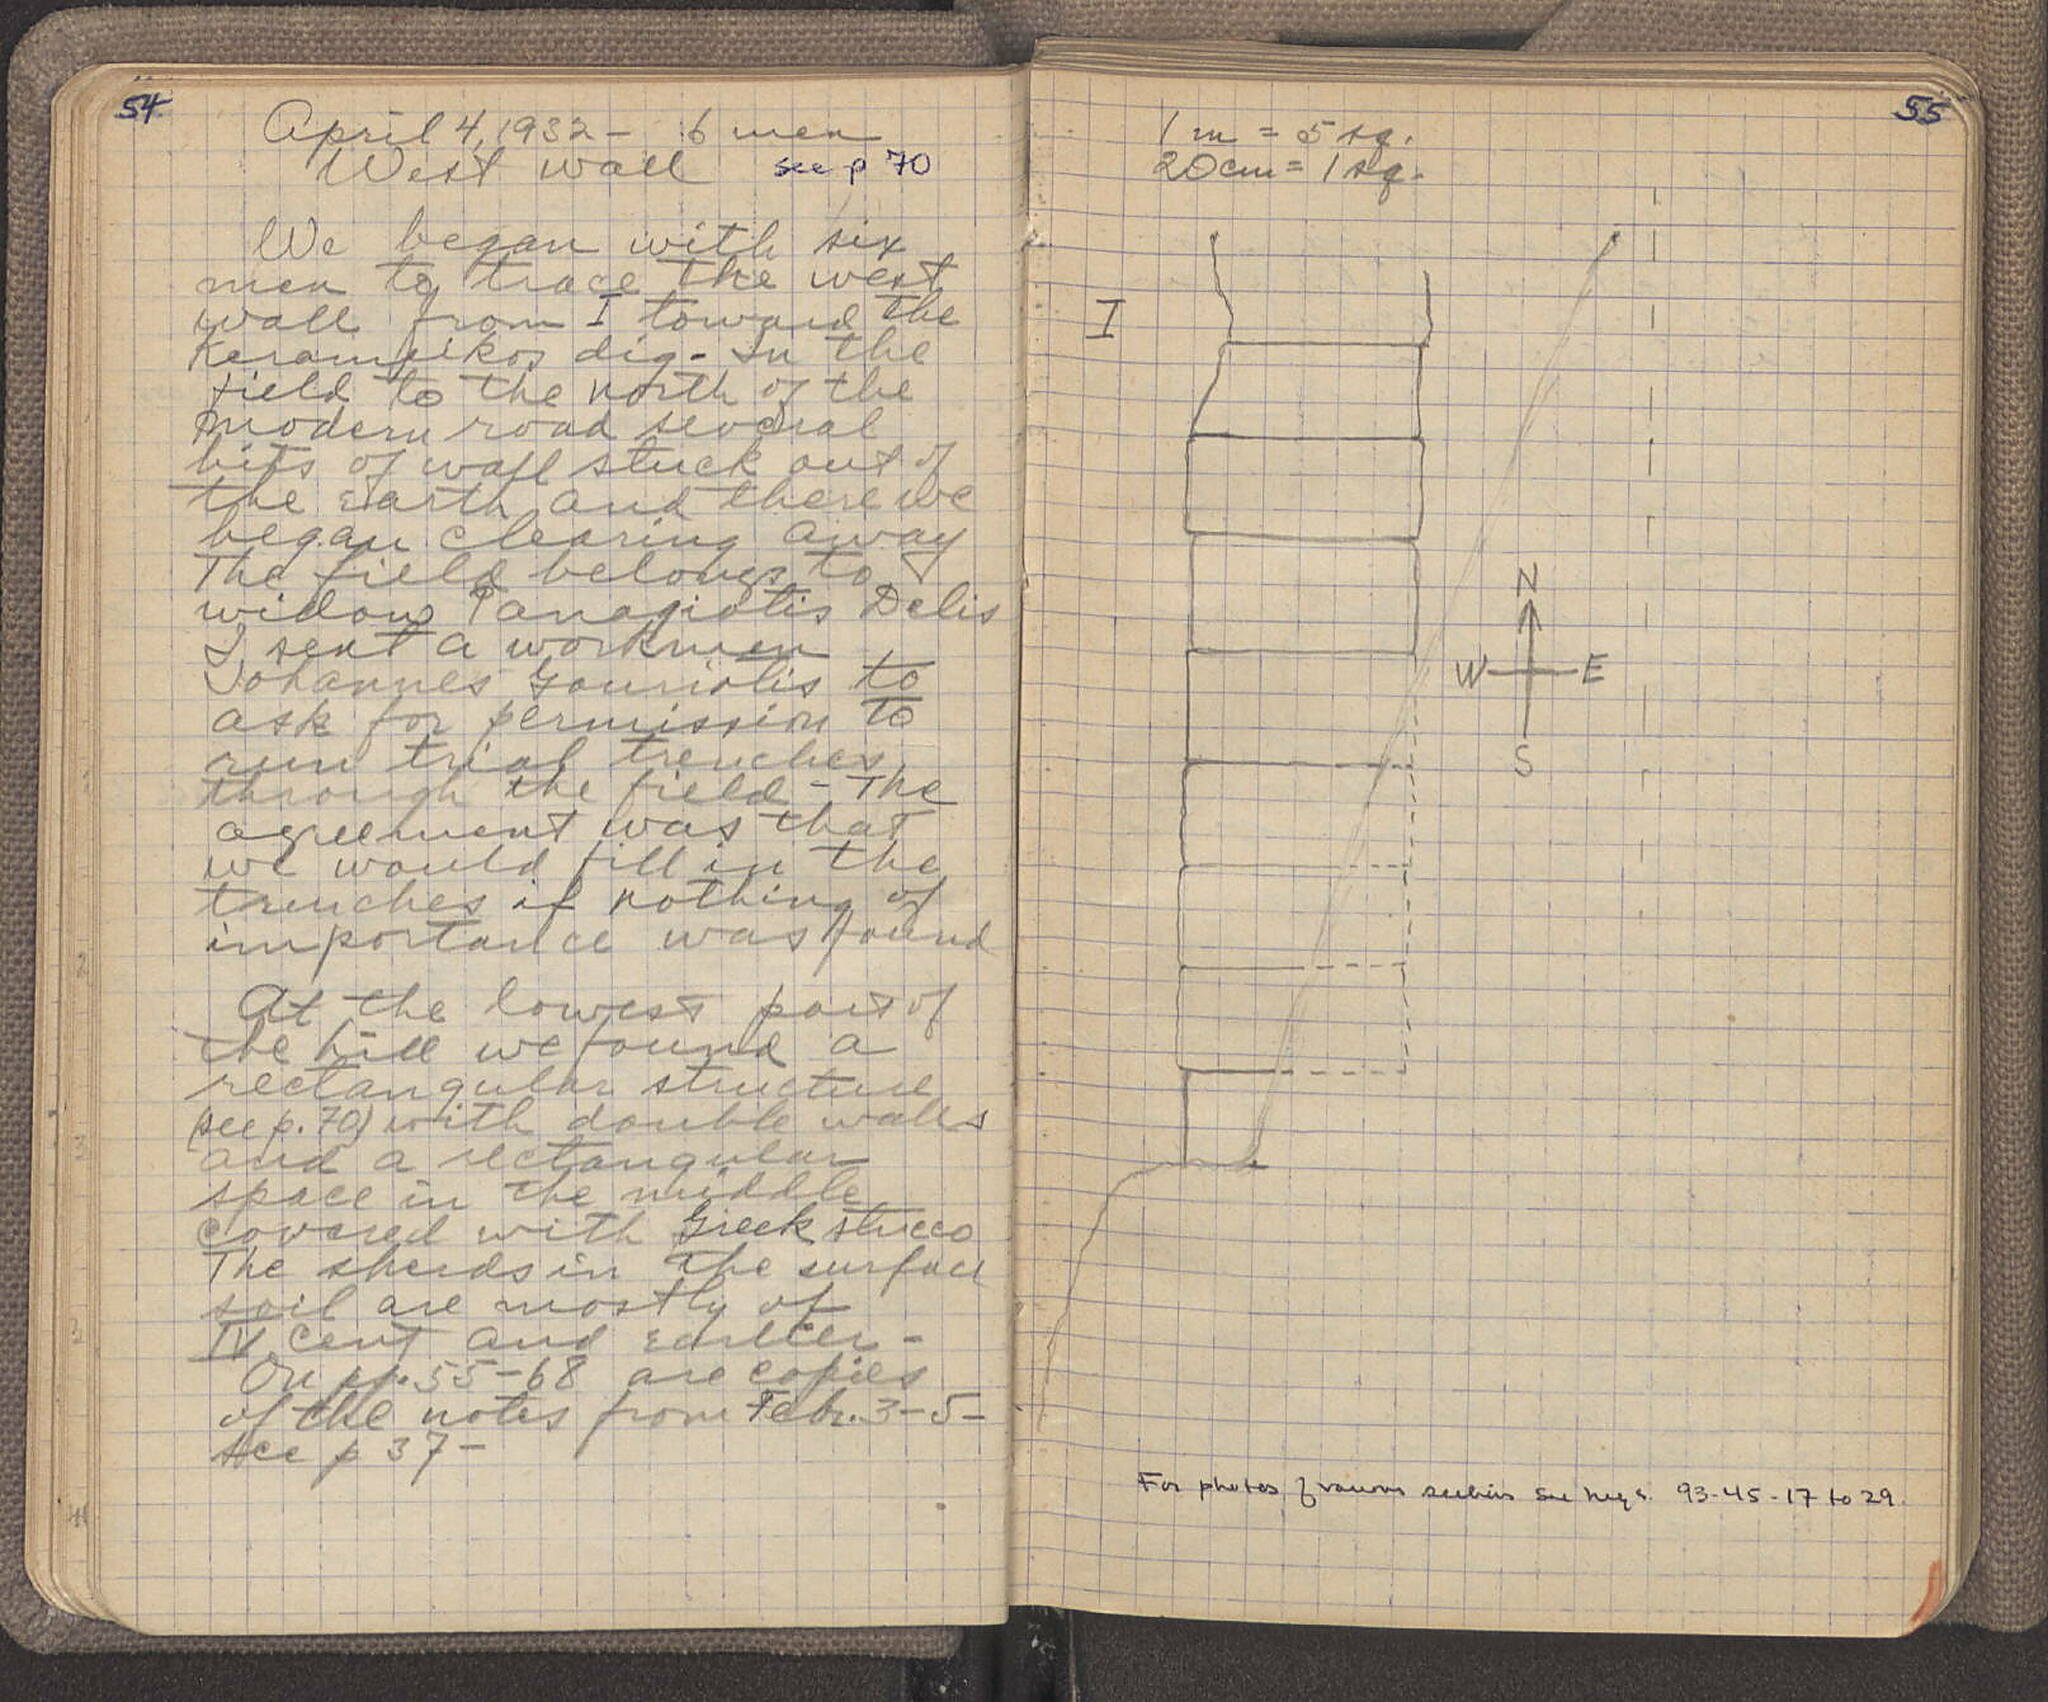 54
April 4, 1932 - 6 men
West wall see p 70
We began with six
men to trace the west
wall from I toward the
Kerameikos dig - In the
field to the north of the
modern road several
bits of wall stuck out of
the earth and there we
began clearing away
The field belongs to
widow Panagiotis Delis
I sent a workmen
Johannes Gouriotis to
ask for permission to
run trial trenches
through the field - The
agreement was that
we would fill in the
trenches if nothing of
importance was found
At the lowest part of
the hill we found a
rectangular structure
(see p. 70) with double walls
and a rectangular
space in the middle
covered with Greek stucco
The sherds in the surface
soil are mostly of
IV cent and earlier -
On pp. 55-68 are copies
of the notes from Febr. 3-5-
see p 37 -
55
1 m = 5 sq.
20cm = 1 sq.
I
N
W E
S
For photos of various sections see negs. 93-45-17 to 29.